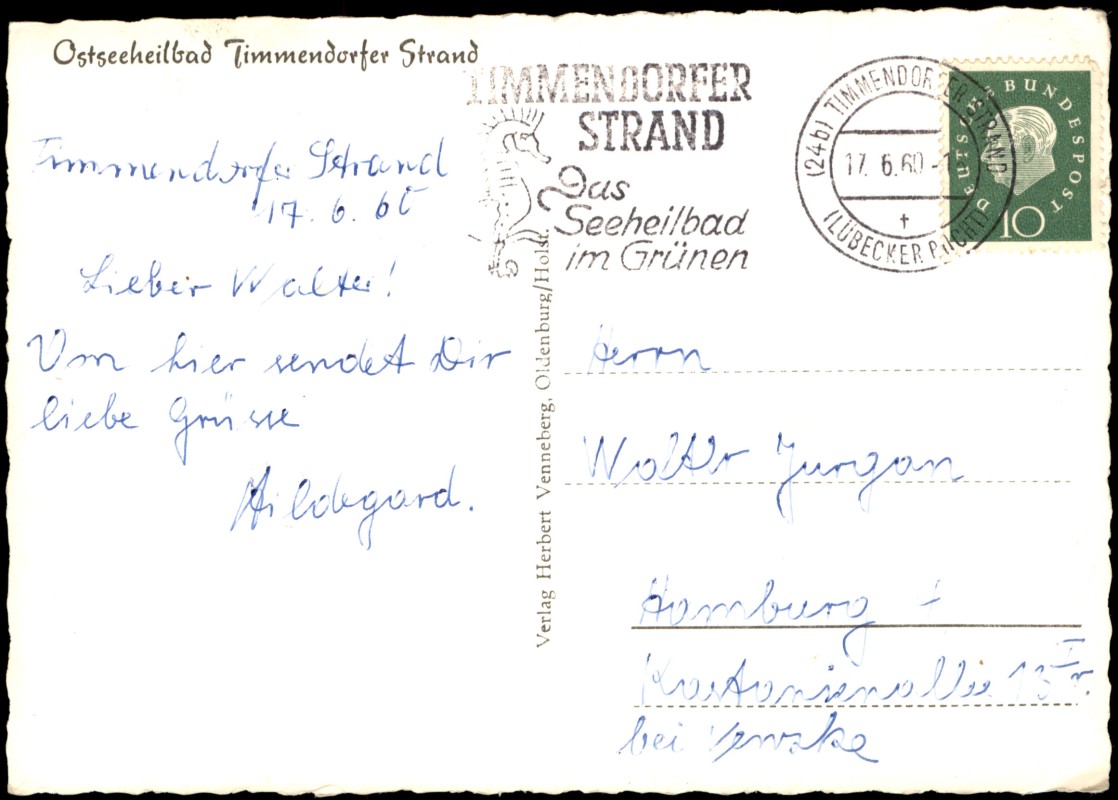 Ostseeheilbad Timmendorfer Strand
TIMMENDORFER
STRAND
Das
Seeheilbad
im Grünen
(24b) TIMMENDORFER STRAND
17.6.60-1
(LÜBECKER BUCHT)
DEUTSCHE BUNDESPOST
10
Timmendorfer Strand
17. 6. 60
Lieber Walter!
Von hier sendet Dir
liebe Grüsse
Hildegard.
Verlag Herbert Venneberg, Oldenburg/Holst.
Herrn
Walter Jurgan
Hamburg
Kastanienallee 13 I r.
bei